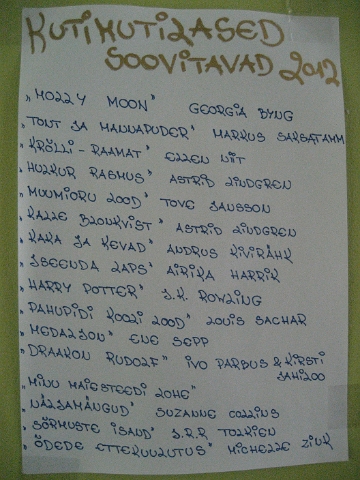 KUTIMUTILASED
SOOVITAVAD 2012
„MOLLY MOON" GEORGIA BYNG
„TONT JA MANNAPUDER" MARKUS SAKSATAMM
„KRÕLLI-RAAMAT" ELLEN NIIT
„HULKUR RASMUS" ASTRID LINDGREN
„MUUMIORU LOOD" TOVE JANSSON
„KALLE BLOMKVIST" ASTRID LINDGREN
„KAKA JA KEVAD" ANDRUS KIVIRÄHK
„ISEENDA LAPS" AIRIKA HARRIK
„HARRY POTTER" J.K. ROWLING
„PAHUPIDI KOOLI LOOD" LOUIS SACHAR
„MEDALJON" ENE SEPP
„DRAAKON RUDOLF" IVO PARBUS & KIRSTI
JAHILOO
„MINU MAJESTEEDI LOHE"
„NÄLJAMÄNGUD" SUZANNE COLLINS
„SÕRMUSTE ISAND" J.R.R TOLKIEN
„ÕDEDE ETTEKUULUTUS" MICHELLE ZINK